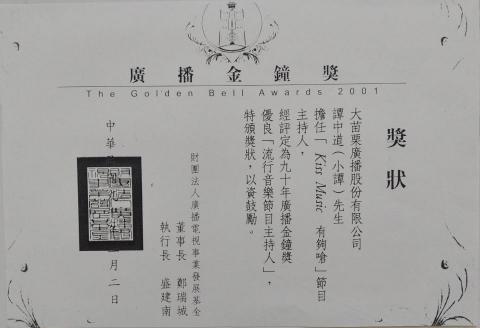 廣播金鐘獎
The Golden Bell Awards 2001
獎狀
大苗栗廣播股份有限公司
譚中道(小譚)先生
擔任「Kiss Music 有夠嗆」節目
主持人，
經評定為九十年廣播金鐘獎
優良「流行音樂節目主持人」，
特頒獎狀，以資鼓勵。
財團法人廣播電視事業發展基金
董事長 鄭瑞城
執行長 盛建南
中華
月二日